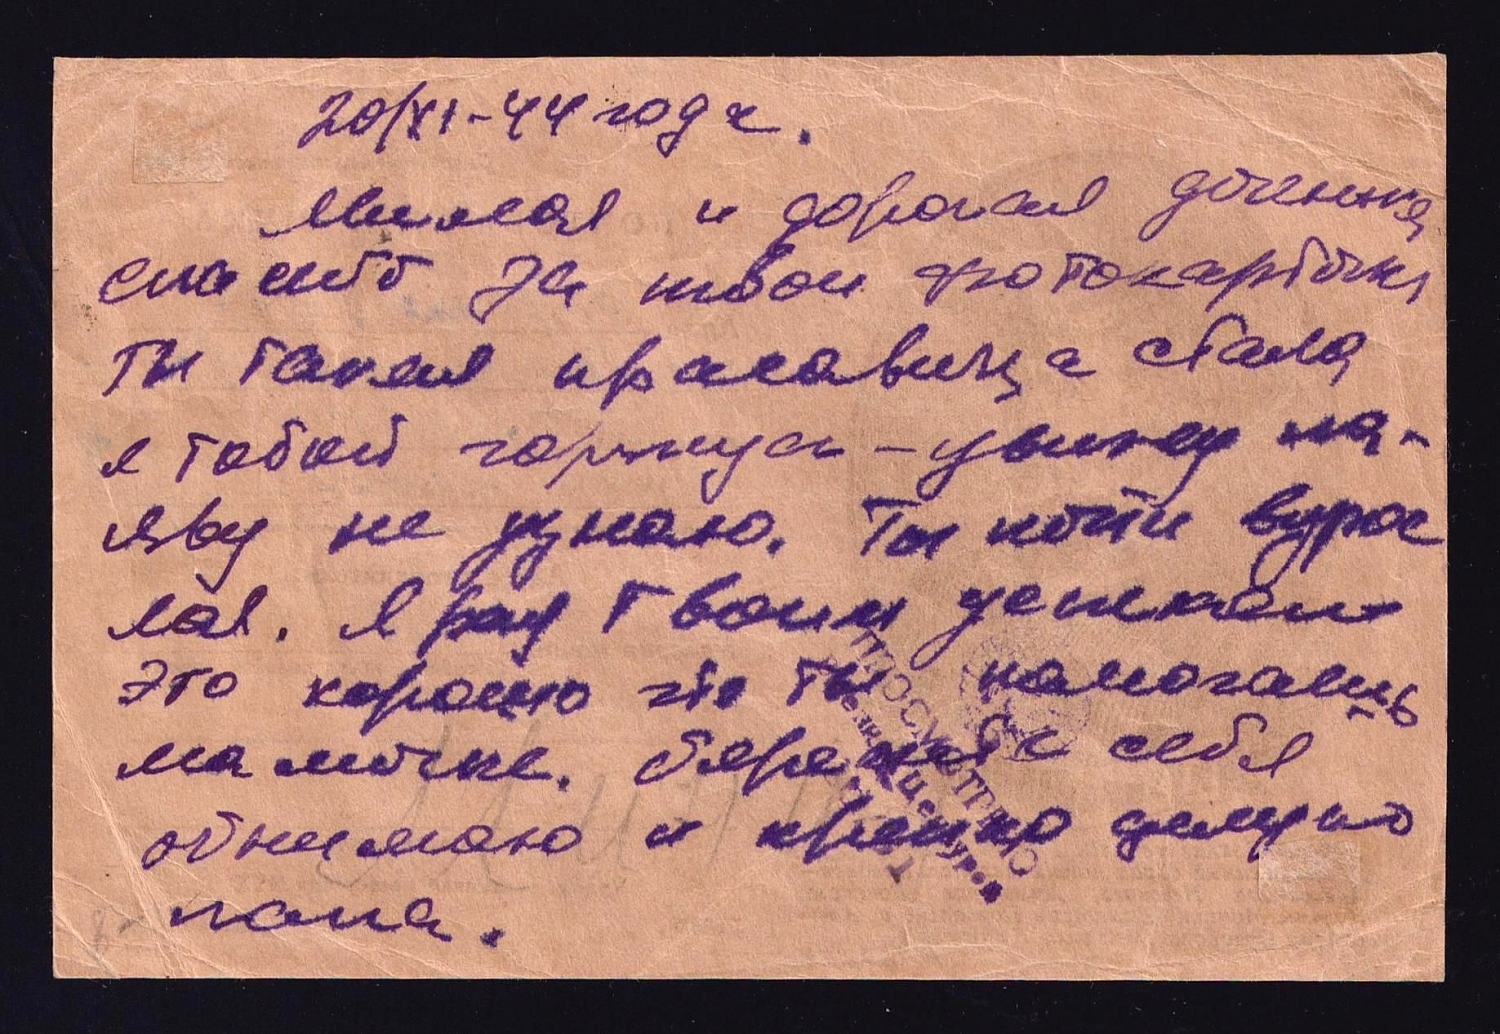 20/XI-44 года.
Милая и дорогая доченька
спасибо за твои фотокарточки
ты такая красавица стала
я тобой горжусь - увижу на-
яву не узнаю. Ты почти взрос
лая. Я рад твоим успехам
это хорошо что ты помогаешь
мамочке. Берегите себя
обнимаю и крепко целую
папа.
ПРОСМОТРЕНО
Военной Цензурой